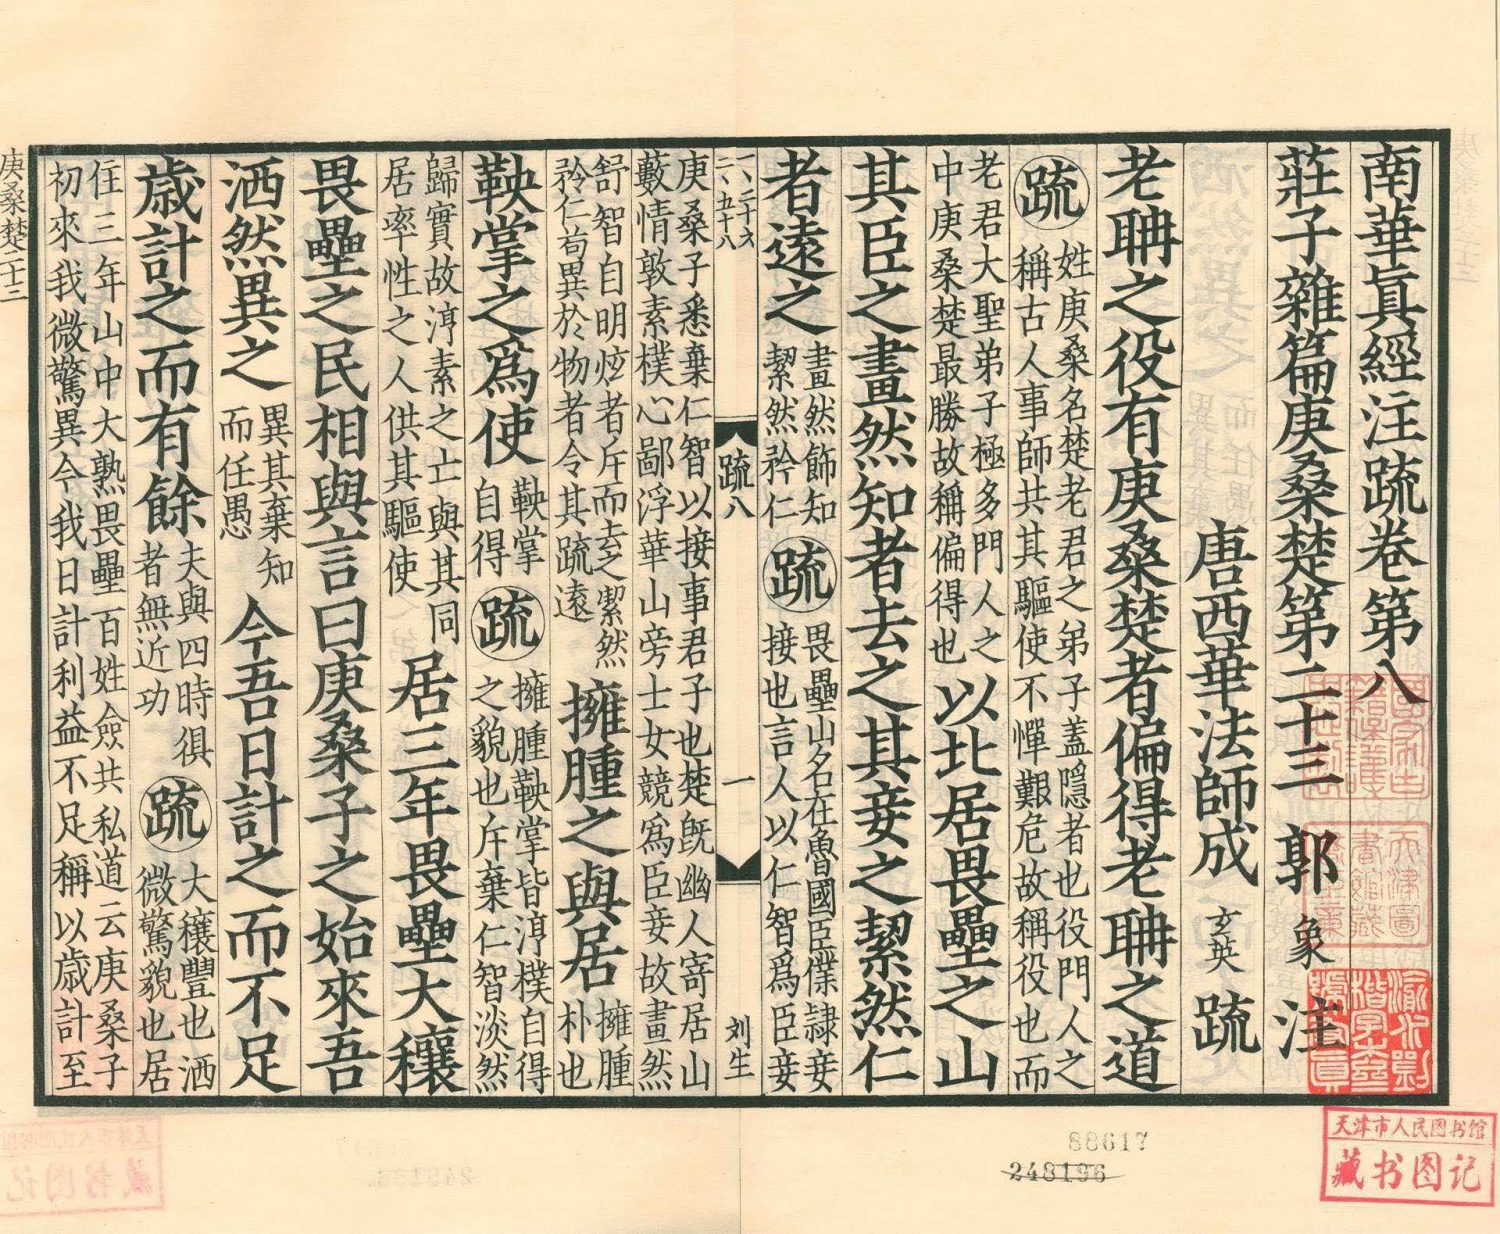 南華眞經注疏卷第八
莊子雜篇庚桑楚第二十三 郭象 注
唐西華法師成 玄英 疏
老聃之役有庚桑楚者偏得老聃之道
疏 姓庚桑名楚老君之弟子蓋隱者也役門人之
稱古人事師共其驅使不憚艱危故稱役也而
老君大聖弟子極多門人之
中庚桑楚最勝故稱偏得也
以北居畏壘之山
其臣之畫然知者去之其妾之絜然仁
者遠之
畫然飾知
絜然矜仁
疏 畏壘山名在魯國臣僕隸妾
接也言人以仁智爲臣妾
一、二十六
二、五十八
疏八
一
刘生
庚桑子悉棄仁智以接事君子也楚旣幽人寄居山
藪情敦素樸心鄙浮華山旁士女競爲臣妾故畫然
舒智自明炫者斥而去之絜然
矜仁苟異於物者令其疏遠
擁腫之與居
擁腫
朴也
鞅掌之爲使
鞅掌
自得
疏 擁腫鞅掌皆淳樸自得
之貌也斥棄仁智淡然
歸實故淳素之亡與其同
居率性之人供其驅使
居三年畏壘大穰
畏壘之民相與言曰庚桑子之始來吾
洒然異之
異其棄知
而任愚
今吾日計之而不足
歲計之而有餘
夫與四時俱
者無近功
疏 大穰豐也洒
微驚貌也居
住三年山中大熟畏壘百姓僉共私道云庚桑子
初來我微驚異今我日計利益不足稱以歲計至
庚桑楚二十三
天津市人民图书馆
藏书图记
88617
248196